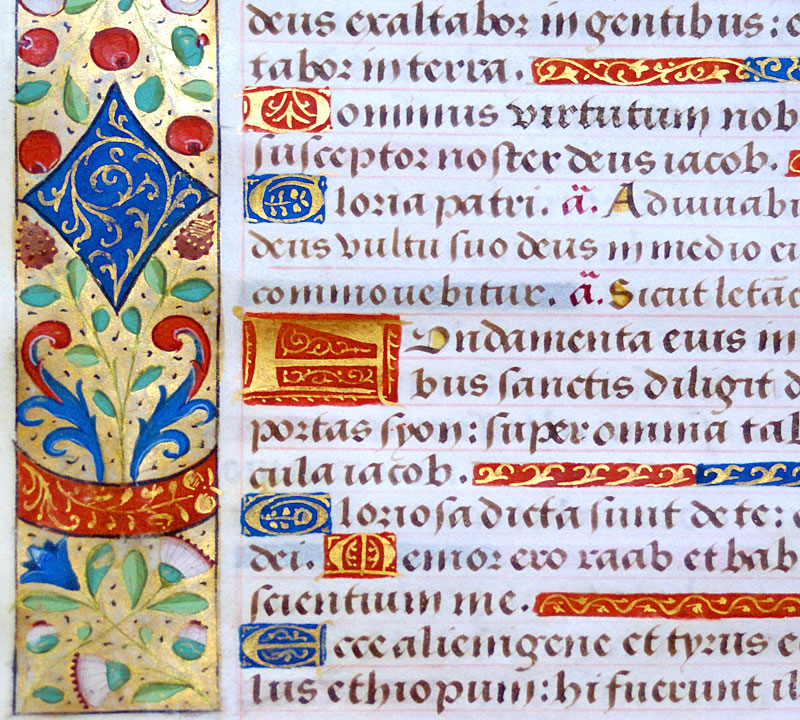 deus exaltabor in gentibus: e
tabor in terra.
Dominus virtutum nob
susceptor noster deus iacob.
Gloria patri. ā. Adiuuabi
deus vultu suo deus in medio ei
commouebitur. ā. Sicut letāc
Fondamenta euis in
bus sanctis diligit d
portas syon: super omnia tab
cula iacob.
Gloriosa dicta sunt de te: c
dei. Memor ero raab et bab
scientium me.
Ecce alienigene et tyrus e
lus ethiopum: hi fuerunt il